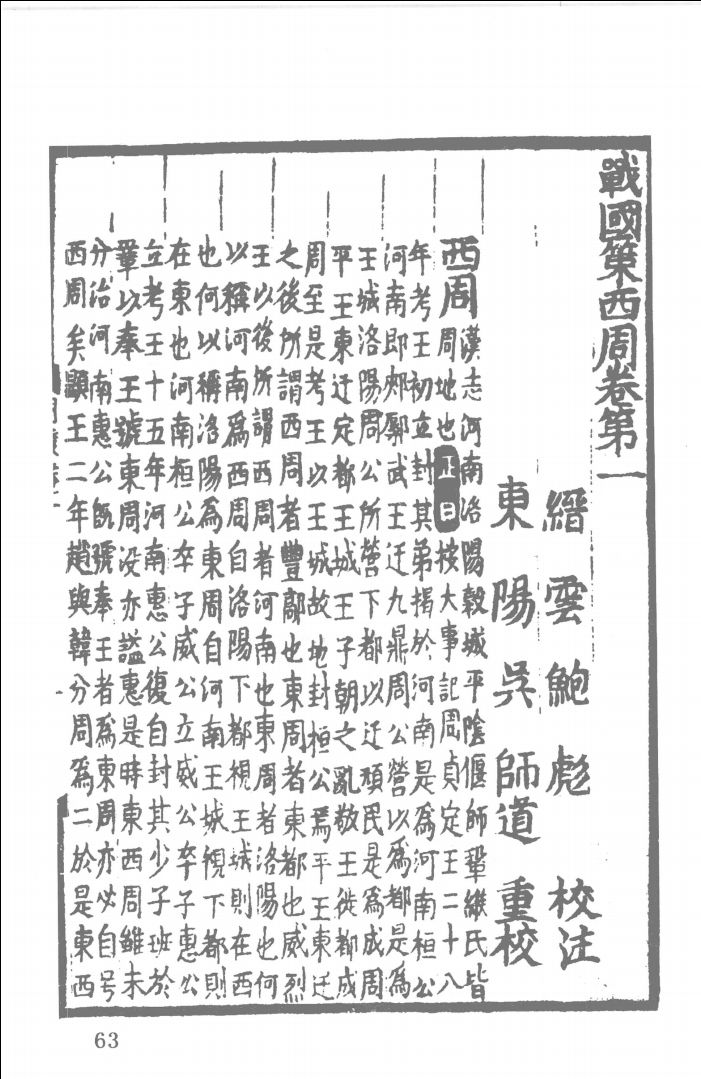 戰國策西周卷第一
縉雲鮑彪校注
東陽吳師道重校
西周
漢志河南洛陽穀城平陰偃師鞏緱氏皆
周地也正曰按大事記周貞定王二十八
年考王初立封其弟揭於河南是爲河南桓公
河南即郟鄏武王迁九鼎周公營以爲都是爲
王城洛陽周公所營下都以迁頑民是爲成周
平王東迁定都王城王子朝之亂敬王徙都成
周至是考王以王城故地封桓公焉平王東迁
之後所謂西周者豐鄗也東周者東都也威烈
王以後所謂西周者河南也東周者洛陽也何
以稱河南爲西周自洛陽下都視王城則在西
也何以稱洛陽爲東周自河南王城視下都則
在東也河南桓公卒子威公立威公卒子惠公
立考王十五年河南惠公復自封其少子班於
鞏以奉王號東周没亦諡惠是時東西周雖未
分治河南惠公旣號奉王者爲東周亦必自号
西周矣顯王二年趙與韓分周爲二於是東西
63